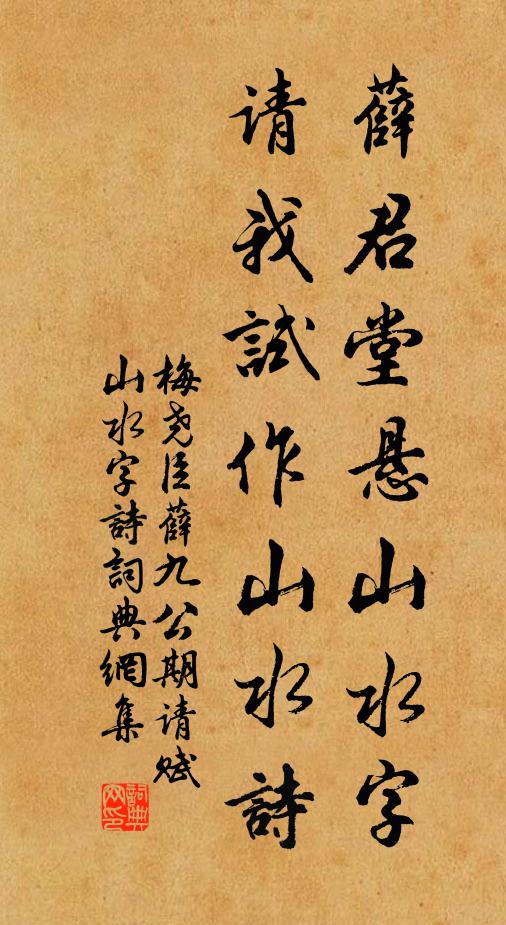 薛君堂悬山水字
请我試作山水詩
梅尧臣薛九公期请赋
山水字詩詞典網集
詞典
网印